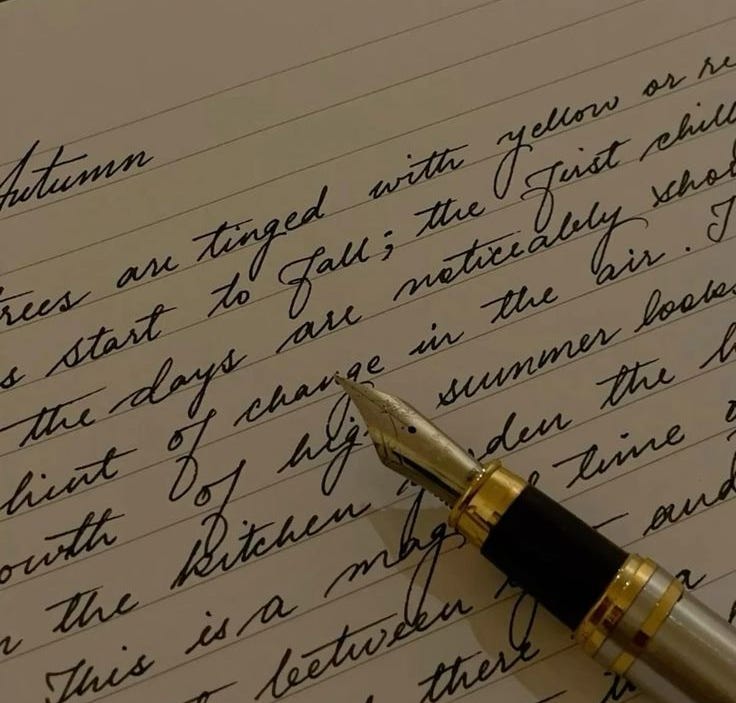 Autumn
trees are tinged with yellow or re
s start to fall; the first chill
the days are noticeably shor
hint of change in the air. T
owth of hig summer looks
n the kitchen den the h
This is a mag time
between and
there a